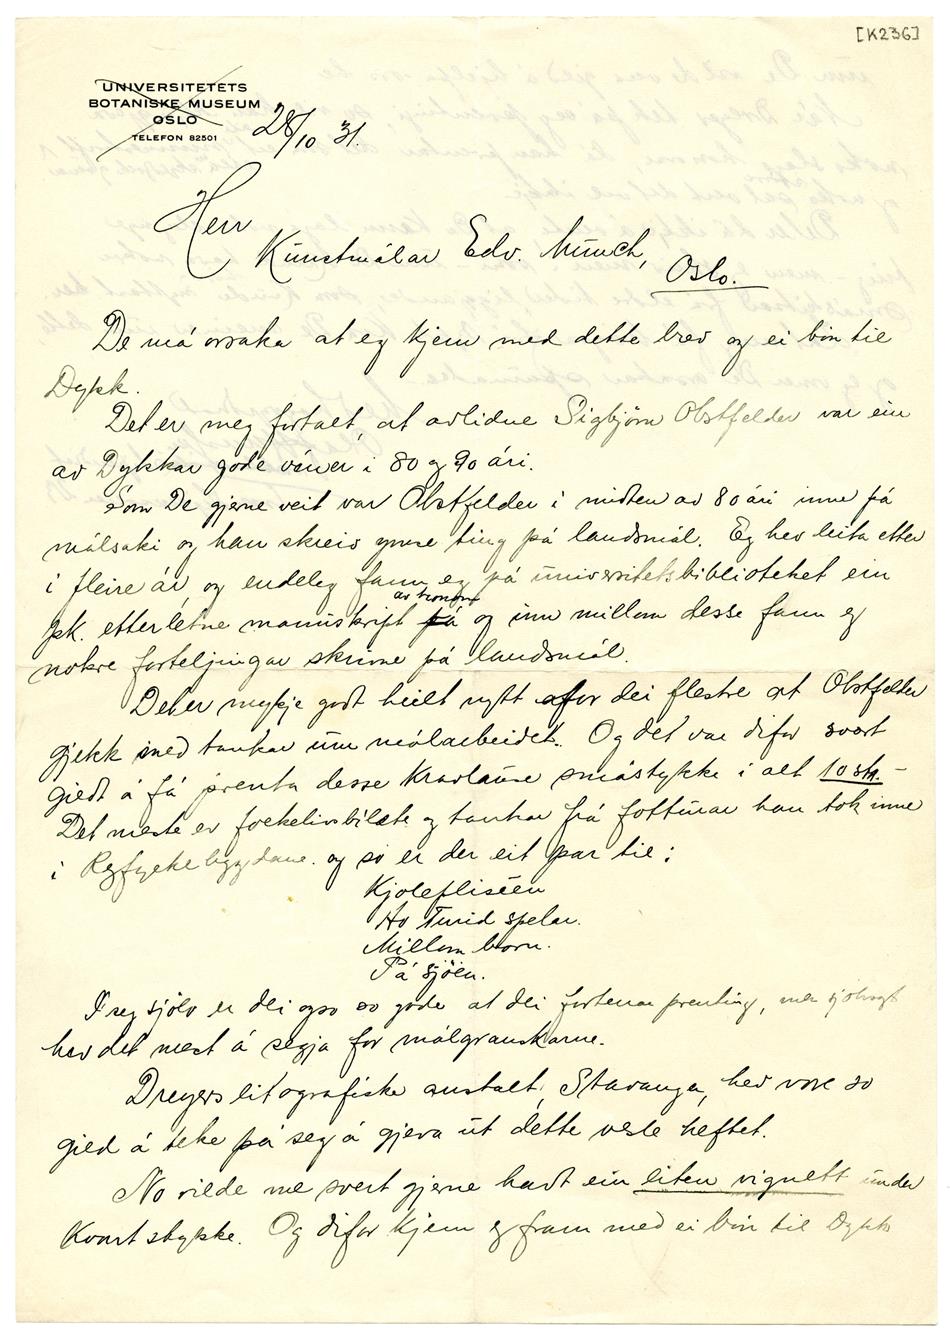 [K236]
UNIVERSITETETS
BOTANISKE MUSEUM
OSLO
TELEFON 82501
28/10 31.
Herr
Kunstmålar Edv. Munch,
Oslo.
De må orsaka at eg kjem med dette brev og ei bøn til
Dykk.
Det er meg fortalt, at avlidne Sigbjörn Obstfelder var ein
av Dykkar gode våner i 80 og 90 åri.
Som De gjerne veit var Obstfelder i midten av 80 åri inne på
målsaki og han skreiv ymse ting på landsmål. Eg hev leita etter
i fleire år, og endeleg fann eg på universitetsbiblioteket ein
pk. etterletne manuskrift på av honom og inn millom desse fann eg
nokre forteljingar skrivne på landsmål.
Det er mykje godt heilt nytt for dei fleste at Obstfelder
gjekk med tankar um målarbeidet. Og det var difor svært
gildt å få prenta desse kravlause småstykke i alt 10 stk. –
Det meste er folkelivsbilæte og tankar frå fotturar han tok inne
i Ryfylke byggdane. og so er der eit par til:
Kjoleflisèen
Ho Turid spelar.
Millom born.
På sjöen.
I seg sjölv er dei ogso so gode at dei fortener prenting, men sjölvsagt
hev det mest å segja for målgranskarne.
Dreyers litografiske anstalt, Stavanger, hev vore so
gild å teke på seg å gjeva ut dette vesle heftet.
No vilde me svert gjerne havt ein liten vignett under
kvart stykke. Og difor kjem eg fram med ei bön til Dykk